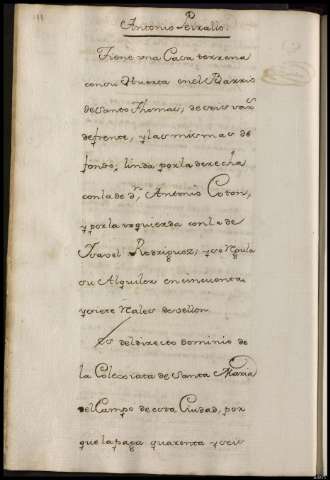 Antonio Peixallo.
Tiene una Casa terrena
con su Huerta en el Barrio
de Santo Thomas, de seis vas
de frente, y las mismas de
fondo, linda por la derecha
con la de dn Antonio Coton,
y por la izquierda con la de
Isavel Rodriguez, y se regula
su Alquiler en cinquenta
y siete Rales de vellon
Es del directo Dominio de
la Colegiata de Santa Maria
del Campo de esta Ciudad, por
que la paga quarenta y seis